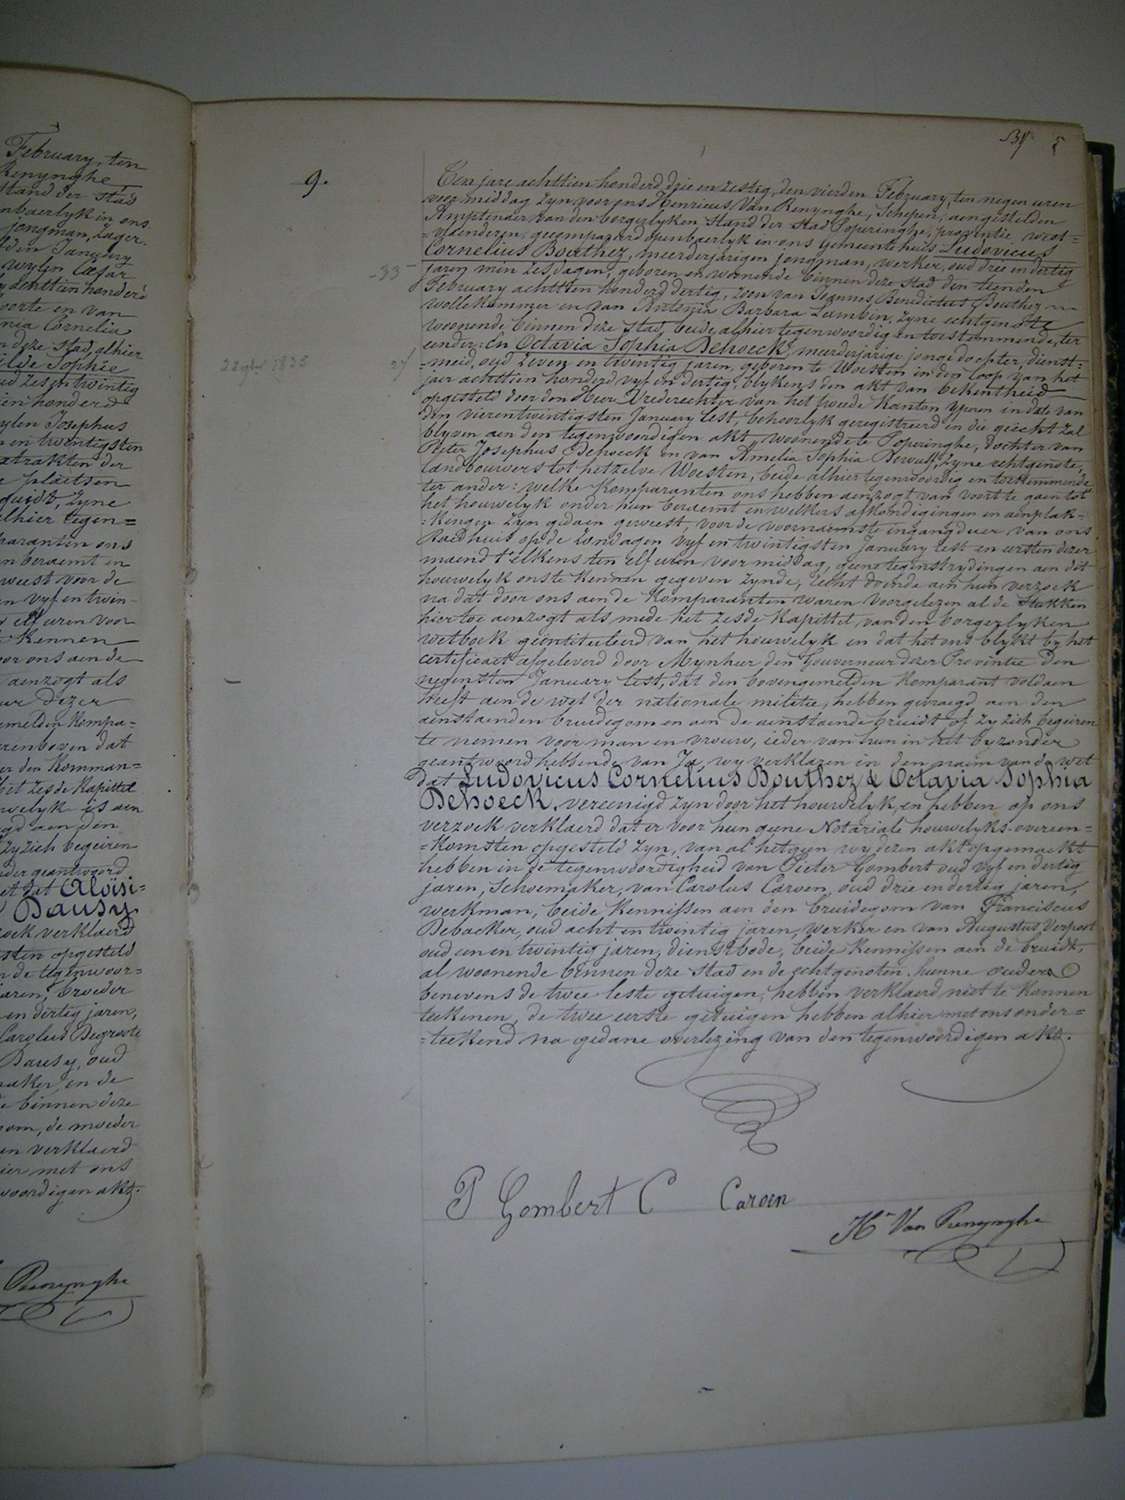 February, ten
Renynghe
stand der stad
nbaerlyk in ons
jongman, zager
den January
wylen Cesar
achttien honderd
oorte en van
nia Cornelia
n deze stad, alhier
ilde Sophie
oud zes en twintig
ien honderd
wylen Josephus
en twintigsten
xtrakten der
e plaetsen
bruidt, zyne
alhier tegen=
paranten ons
n beraemt en
weest voor de
en vyf en twin-
elf uren voor
kennen
oor ons aen de
aenzogt als
ur dezer
emelden kompa-
renboven dat
er den Komman=
het zesde kapittel
welyk is aen
gd aen den
zy zich begeiren
eder geantwoord
et dat Aloisi-
Dausy
zoek verklaerd
sten opgesteld
n de tegenwoor=
aren, broeder
en dertig jaren,
Carolus Degroote
Dausy, oud
maker, en de
e binnen deze
om, de moeder
en verklaerd
ier met ons
woordigen akt.
Renynghe
5
9.
Ten jare achttien honderd drie en zestig, den vierden February, ten negen uren
voor middag zyn voor ons Henricus Van Renynghe, Schepen, aengestelden
Amptenaer van den borgerlyken stand der stad Poperinghe, provintie west-
-vlaenderen, gecompareerd openbaerlyk in ons Gemeentehuis Ludovicus
Cornelius Bouthez, meerderjarigen jongman, werker, oud drie en dertig
-33-
jaren min zes dagen, geboren en wonende binnen deze stad den tienden
February achttien honderd dertig, zoon van Joannes Benedictus Bouthez
wollekammer en van Antonia Barbara Lambin, zyne echtgenote
woonende binnen deze stad, beide alhier tegenwoordig en toestemmende, ter
eender; En Octavia Sophia Dehoeck, meerderjarige jonge dochter, dienst-
22 9ber 1835
27
-meid, oud zeven en twintig jaren, geboren te Woesten in den loop van het
jaer achttien honderd vyf en dertig, blykens den akt van bekentheid
opgesteld door den Heer Vrederechter van het tweede Kanton Yperen in date van
den vierentwintigsten January lest, behoorlyk geregistreerd en die gehecht zal
blyven aen den tegenwoordigen akt, woonende te Poperinghe, dochter van
Pieter Josephus Dehoeck en van Amelia Sophia Dewulf, zyne echtgenote,
landbouwers tot hetzelve Woesten, beide alhier tegenwoordig en toestemmende
ter ander: welke Komparanten ons hebben aenzogt van voort te gaen tot
het houwelyk onder hun beraemt en welkers afkondigingen en aenplak-
-kingen zyn gedaen geweest, voor de voornaemste ingangdeur van ons
stadhuis op de zondagen vyf en twintigsten January lest en eersten dezer
maend t'elkens ten elf uren voor middag, geene tegenstrydingen aen dit
houwelyk ons te kennen gegeven zynde, recht doende aen hun verzoek
na dat door ons aen de Komparanten waren voorgelezen al de stukken
hiertoe aenzogt als mede het zesde kapittel van den borgerlyken
wetboek geintituleerd van het houwelyk en dat het ons blykt by het
certificaet afgeleverd door Mynheer den Gouverneur dezer Provintie den
negensten January lest, dat den bovengemelden Komparant voldaen
heeft aen de wet der nationale militie, hebben gevraegd aen den
aenstaenden bruidegom en aen de aenstaende bruidt of zy zich begeiren
te nemen voor man en vrouw, ieder van hun in het byzonder
geantwoord hebbende van Ja, wy verklaren in den naem van de wet
dat Ludovicus Cornelius Bouthez & Octavia Sophia
Dehoeck, vereenigd zyn door het houwelyk, en hebben op ons
verzoek verklaerd dat er voor hun geene Notariale houwelyks-overeen-
-komsten opgesteld zyn, van al hetgeen wy dezen akt opgemaekt
hebben in de tegenwoordigheid van Pieter Gombert oud vyf en dertig
jaren, schoemaker, van Carolus Caroen, oud drie en dertig jaren,
werkman, beide kennissen aen den bruidegom van Franciscus
Debacker, oud acht en twintig jaren, werker en van Augustus Verpoet
oud een en twintig jaren, dienstbode, beide kennissen aen de bruidt,
al woonende binnen deze stad en de echtgenoten hunne ouders
benevens de twee leste getuigen, hebben verklaerd niet te konnen
teekenen, de twee eerste getuigen hebben alhier met ons onder=
-teekend na gedane overlezing van den tegenwoordigen akt.
P Gombert C Caroen
Hri Van Renynghe